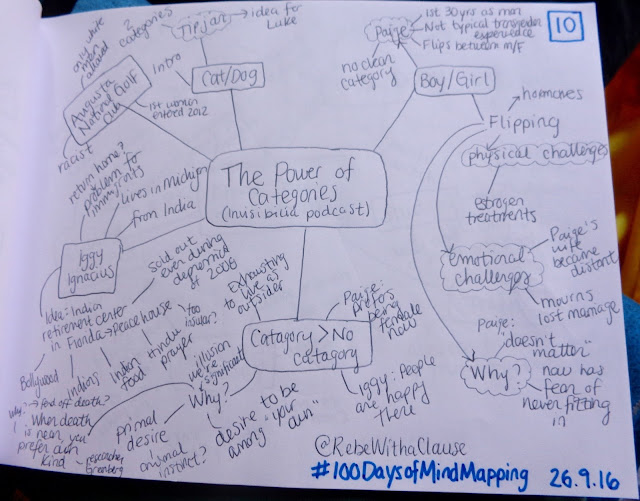 10
2 categories
Tip jar
idea for Luke
Intro
Cat/Dog
only white men allowed
Augusta
National Golf
Club
1st women
entered 2012
racist
Paige
1st 30 yrs as man
Not typical transgender
experience
Flips between M/F
no clean
category
Boy/Girl
hormones
Flipping
physical challenges
estrogen
treatments
emotional
challenges
Paige's
wife
became
distant
mourns
lost marriage
Why?
Paige:
"doesn't
matter"
now has
fear of
never fitting
in
The Power of
Categories
(Invisibilia podcast)
return home?
problem for
immigrants
lives in Michigan
from India
Iggy
Ignacius
Idea: Indian
retirement center
in Florida
sold out
even during
depression
of 2008
Peace house
Bollywood
Indians
Indian
food
Hindu
prayer
too
insular?
Why?
fend off death?
When death
is near, you
prefer own
kind
researcher
Greenberg
Catagory > No
catagory
Exhausting
to live as
outsider
Paige:
prefers
being
female
now
Iggy: People
are happy
there
Why?
illusion
we're
significant
primal
desire
animal
instinct?
desire to be
among "your
own"
@RebeWithaClause
#100DaysofMindMapping 26.9.16